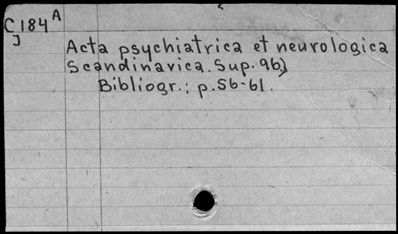 C184 A
J
Acta psychiatrica et neurologica
Scandinavica. Sup. 96)
Bibliogr.: p. 56-61.